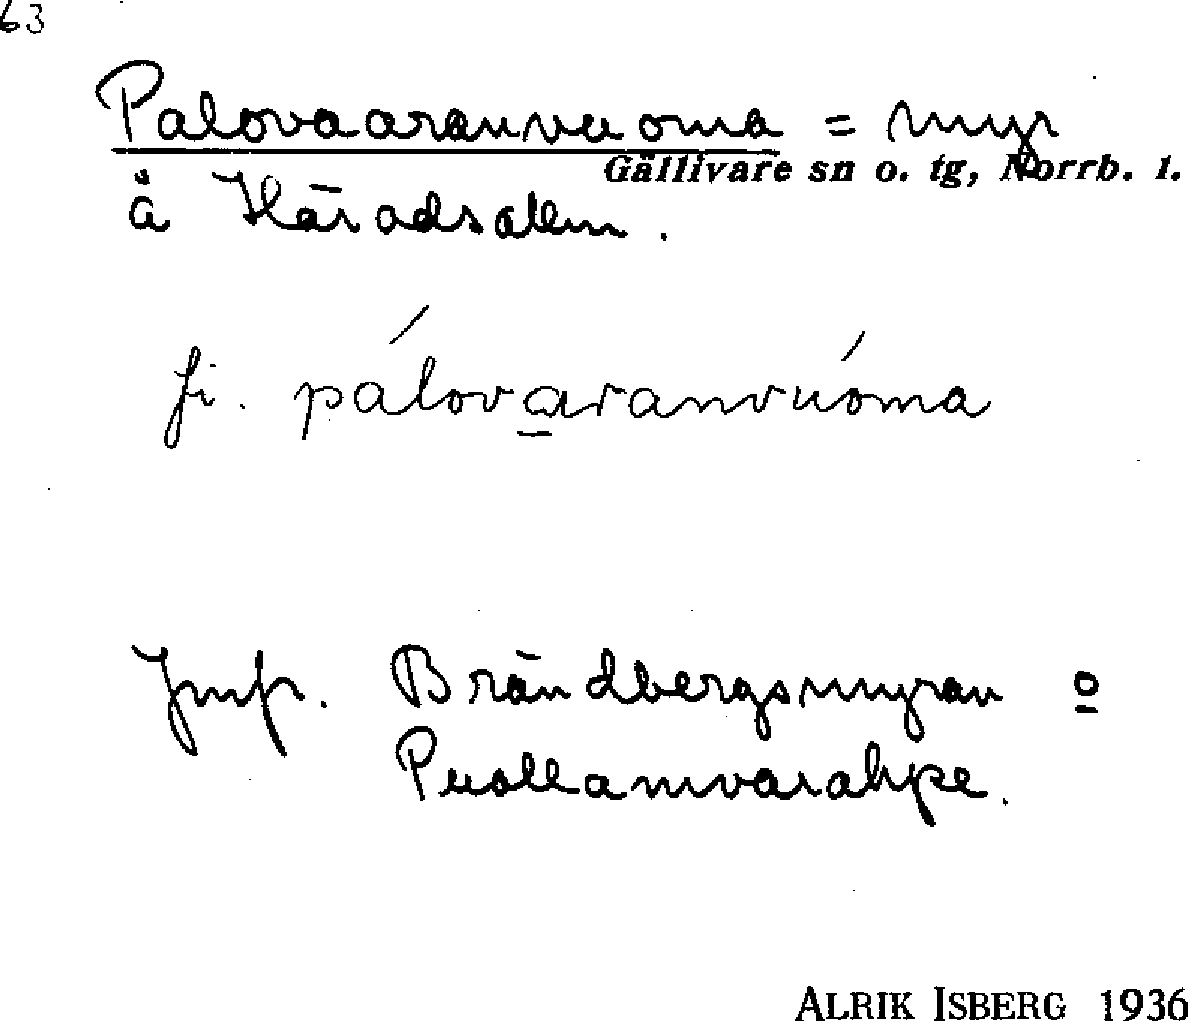 63
Palovaaranvuoma = myr
Gällivare sn o. tg, Norrb. l.
å Häradsallm.
fi. pálovaranvuóma
Jmf. Brändbergsmyran o
Puollamvarahpe.
ALRIK ISBERG 1936